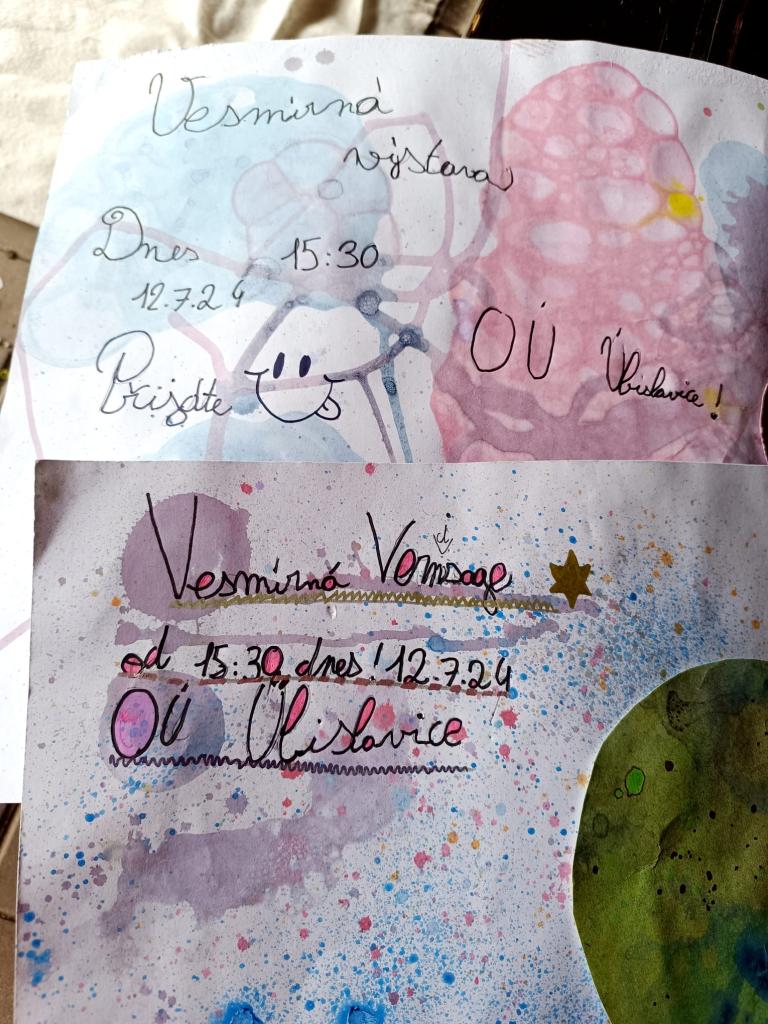 Vesmírná
výstava
Dnes 15:30
12.7.24
Přijdte
OÚ Úbislavice!
Vesmírná Vernisage
od 15:30 dnes! 12.7.24
OÚ Úbislavice